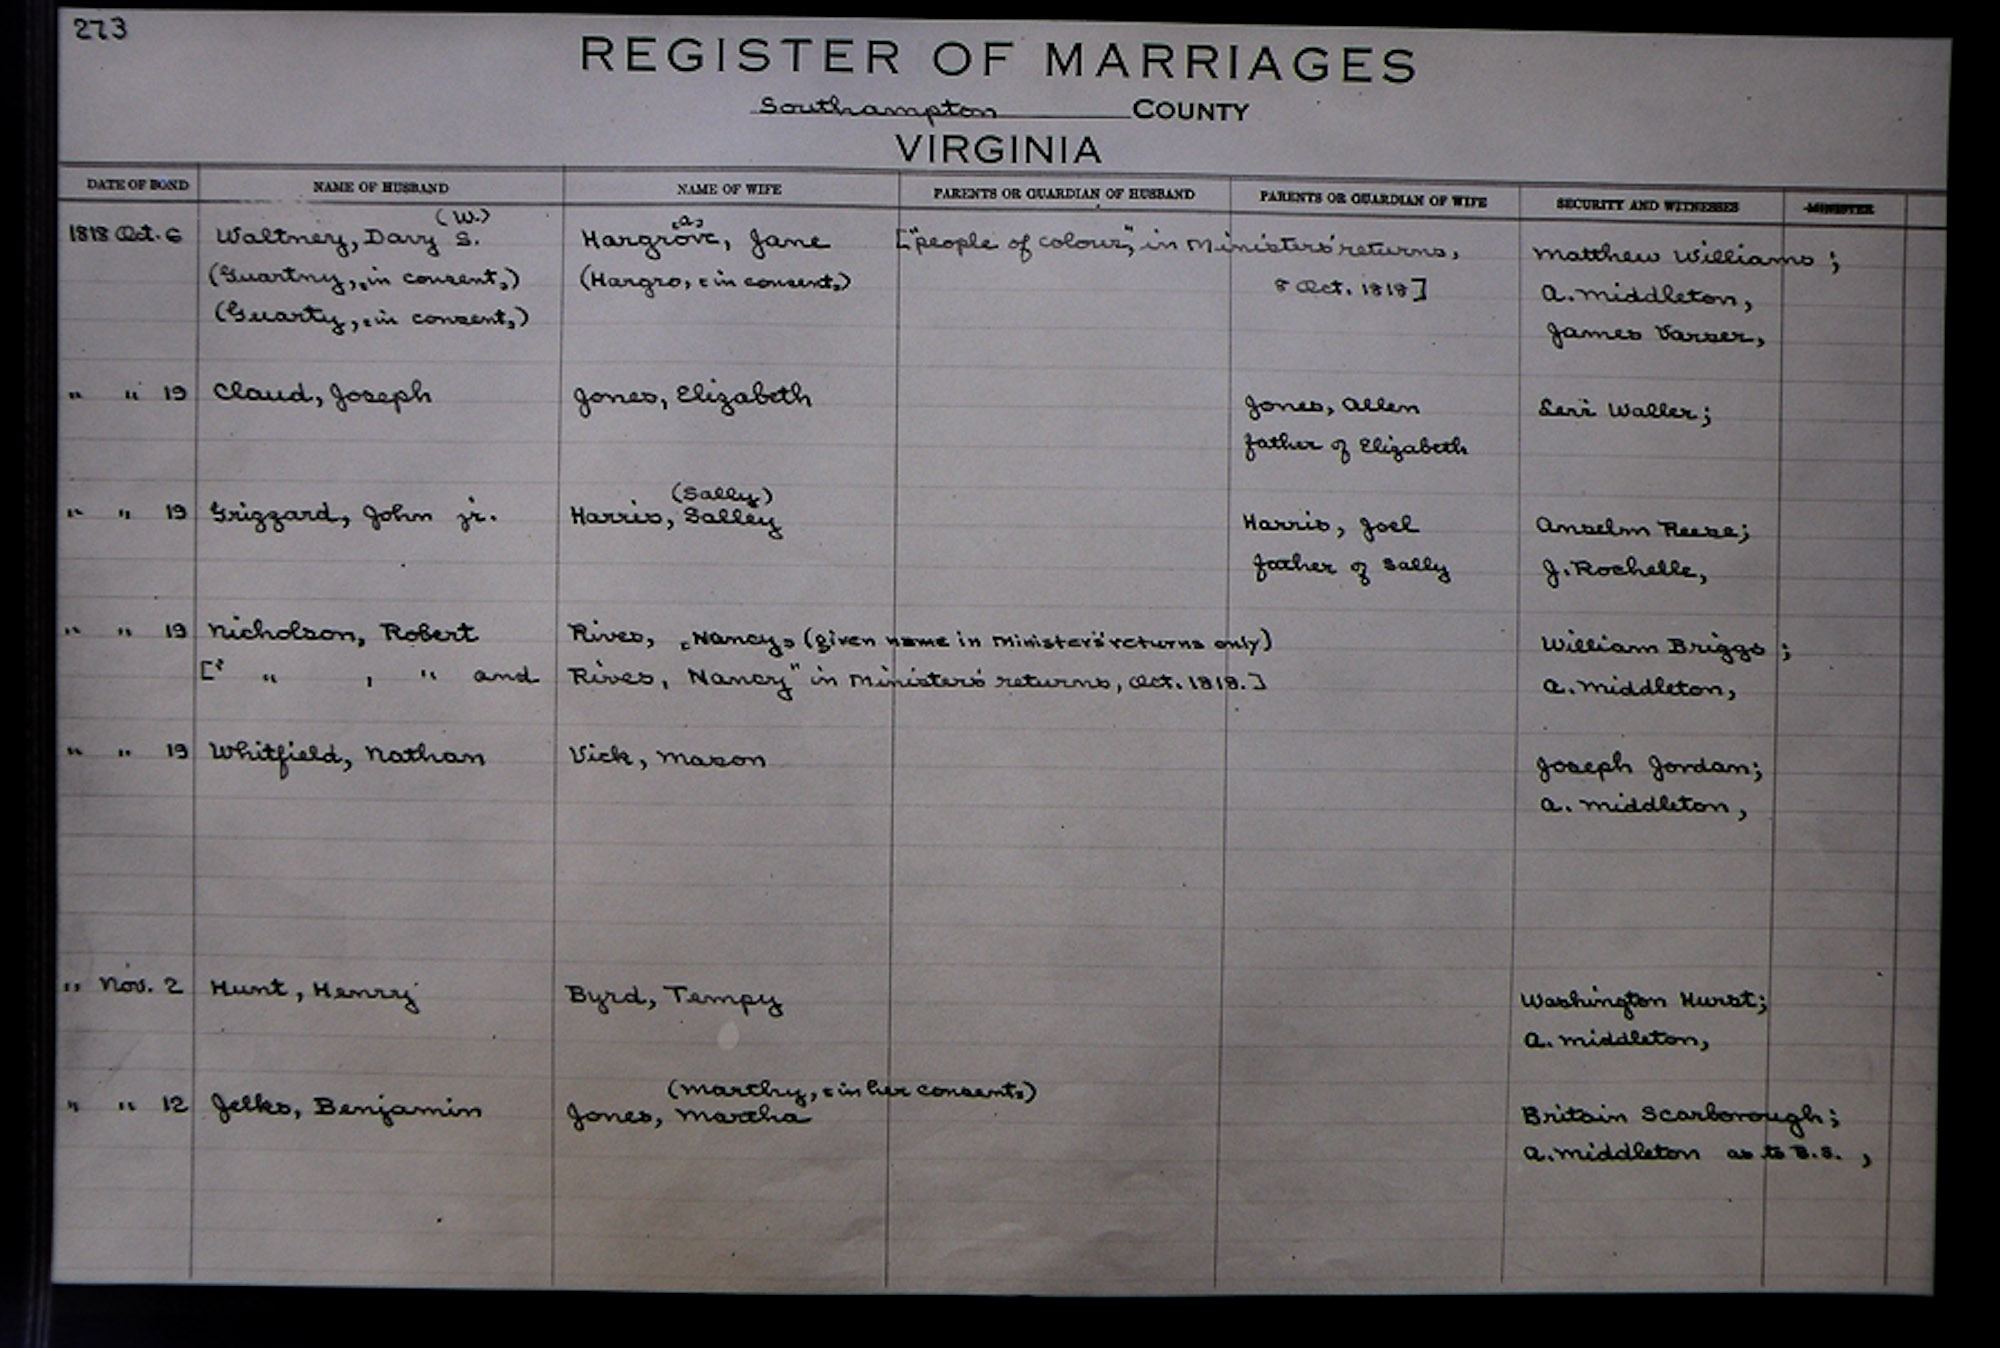 273
REGISTER OF MARRIAGES
Southampton COUNTY
VIRGINIA
DATE OF BOND NAME OF HUSBAND NAME OF WIFE PARENTS OR GUARDIAN OF HUSBAND PARENTS OR GUARDIAN OF WIFE SECURITY AND WITNESSES MINISTER
(W.) "a"
1818 Oct. 6 Waltney, Davy S. Hargrove, Jane ["people of colour," in Ministers' returns, Matthew Williams;
(Guartny, "in consent,") (Hargro, "in consent,") 8 Oct. 1818] A. Middleton,
(Guarty, "in consent,") James Varser,
" " 19 Claud, Joseph Jones, Elizabeth Jones, Allen Levi Waller;
father of Elizabeth
(Sally)
" " 19 Grizzard, John jr. Harris, Salley Harris, Joel Anselm Reese;
father of Sally J. Rochelle,
" " 19 Nicholson, Robert Rives, "Nancy" (given name in Ministers' returns only) William Briggs;
[" " , " and Rives, Nancy" in Minister's returns, Oct. 1818.] A. Middleton,
" " 19 Whitfield, Nathan Vick, Mason Joseph Jordan;
A. Middleton,
" Nov. 2 Hunt, Henry Byrd, Tempy Washington Hurst;
A. Middleton,
(Marthy, "in her consent")
" " 12 Jelks, Benjamin Jones, Martha Britain Scarborough;
A. Middleton as to B.S. ,